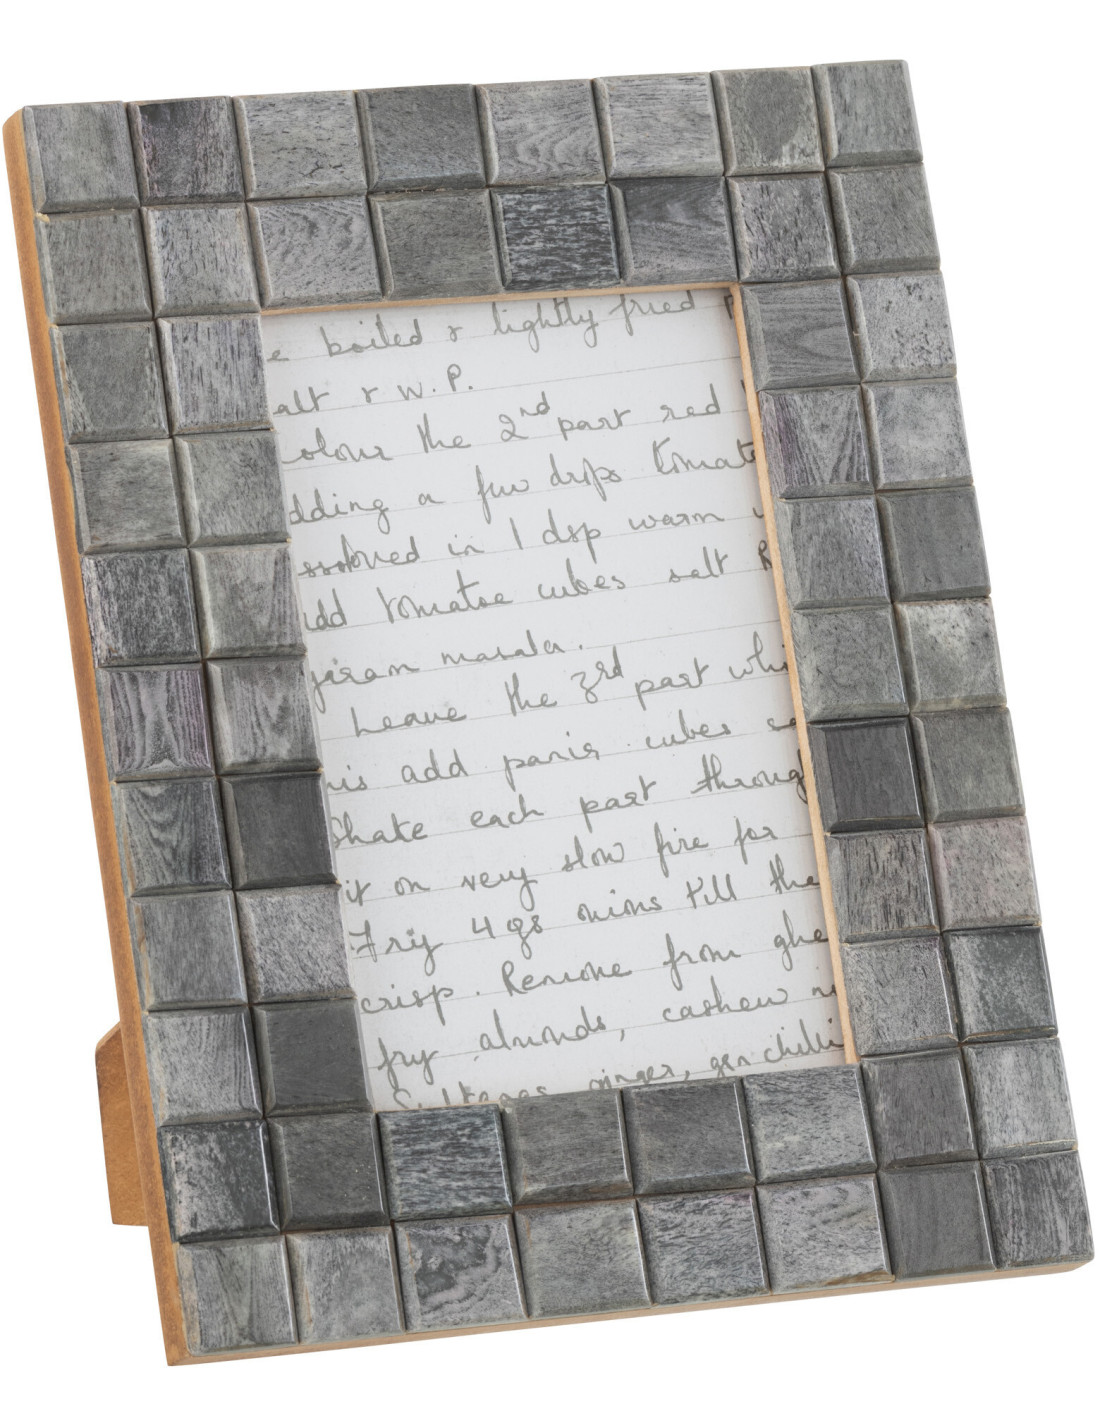 e boiled & lightly fried
alt & W.P.
olour the 2nd part red
dding a few drops tomato
ssolved in 1 dsp warm
dd tomatoe cubes salt
garam masala.
Leave the 3rd part whi
is add panir cubes sa
Shake each part throug
it on very slow fire for
Fry 4 gs onions till the
crisp. Remove from ghe
fry almonds, cashew n
ginger, gen chilli